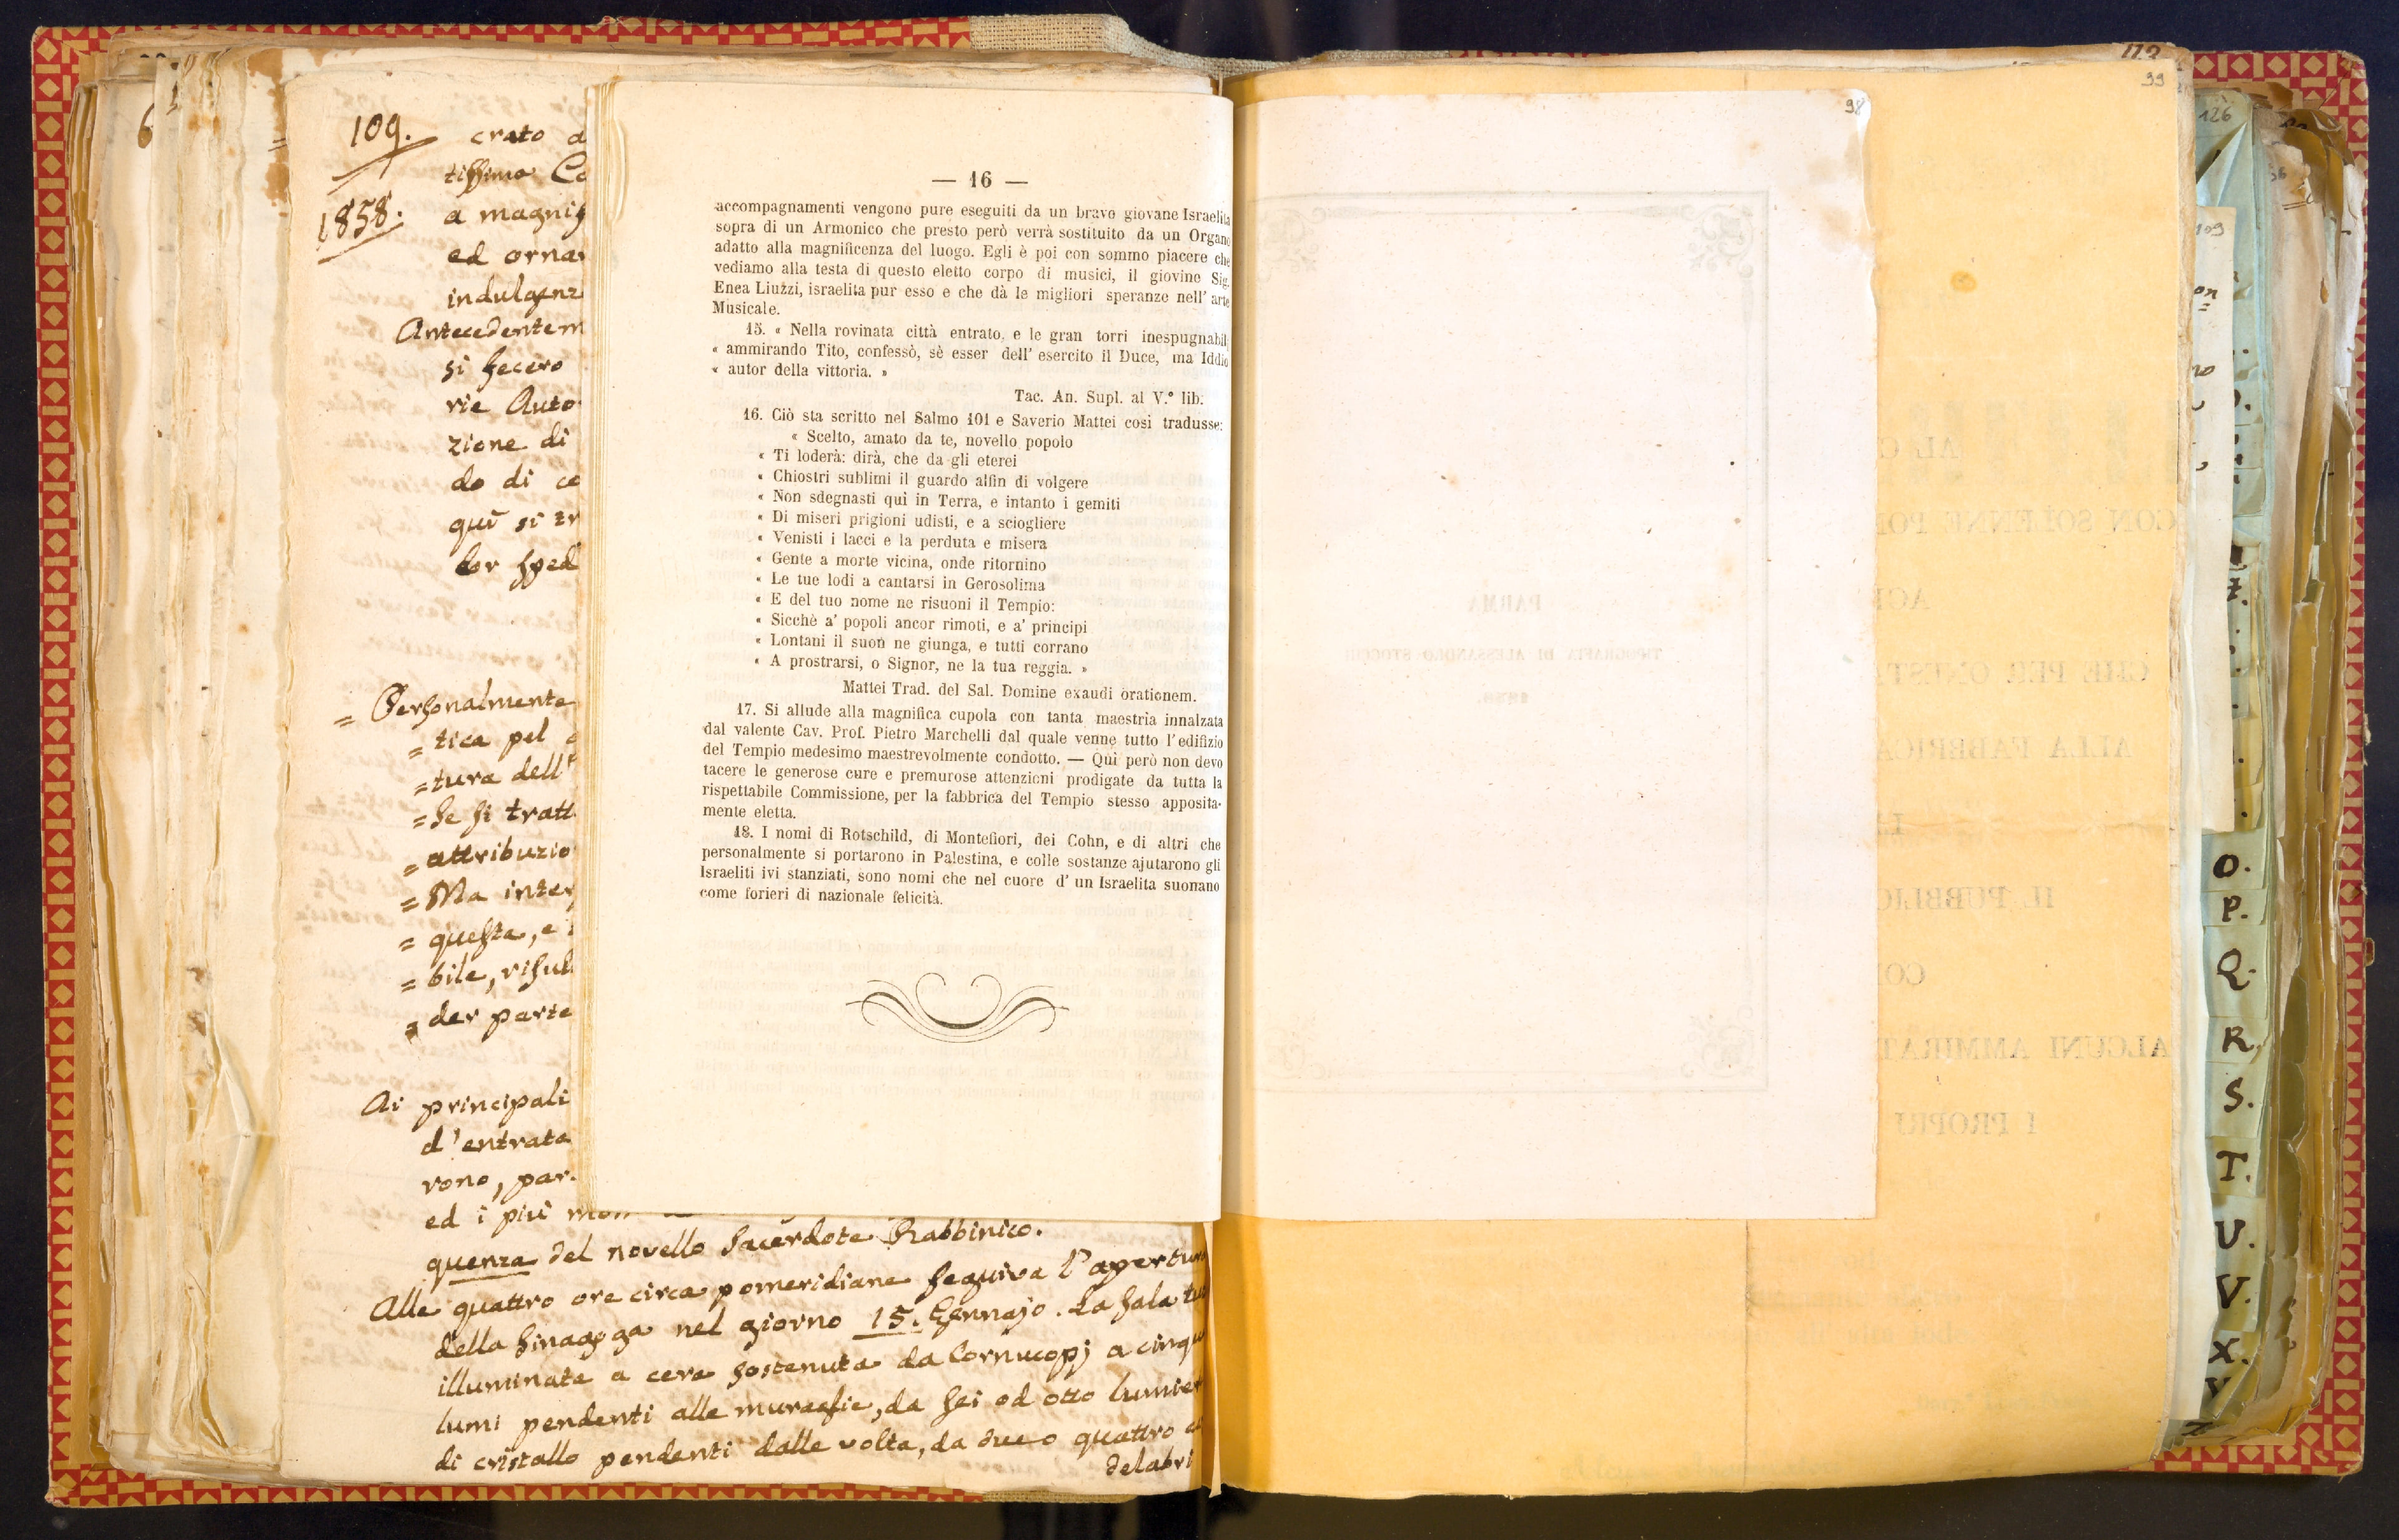 109.
1858.
crato
tissimo
a magnif
ed ornar
indulgenz
Antecedentem
si fecero
rie Auto
zione di
do di co
quì si tr
lor sped
= Personalmente
= tica pel
= tura dell'
= se si tratt
= attribuzio
= Ma inter
= questa, e
= bile, risul
= der parte
Ai principali
d'entrata
rono, par
ed i più
quenza del novello Sacerdote Rabbinico.
Alle quattro ore circa pomeridiane seguiva l'apertur
della Sinagoga nel giorno 15. Gennajo. La Sala
illuminata a cera sostenuta da Cornucopj a cinqu
lumi pendenti alle muraglie, da sei od otto lumier
di cristallo pendenti dalle volta, da due o quattro
delabri
— 16 —
accompagnamenti vengono pure eseguiti da un bravo giovane Israelita
sopra di un Armonico che presto però verrà sostituito da un Organo
adatto alla magnificenza del luogo. Egli è poi con sommo piacere che
vediamo alla testa di questo eletto corpo di musici, il giovine Sig.
Enea Liuzzi, israelita pur esso e che dà le migliori speranze nell' arte
Musicale.
15. « Nella rovinata città entrato, e le gran torri inespugnabili
« ammirando Tito, confessò, sè esser dell' esercito il Duce, ma Iddio
« autor della vittoria. »
Tac. An. Supl. al V.° lib.
16. Ciò sta scritto nel Salmo 101 e Saverio Mattei così tradusse:
« Scelto, amato da te, novello popolo
« Ti loderà: dirà, che da gli eterei
« Chiostri sublimi il guardo alfin di volgere
« Non sdegnasti quì in Terra, e intanto i gemiti
« Di miseri prigioni udisti, e a sciogliere
« Venisti i lacci e la perduta e misera
« Gente a morte vicina, onde ritornino
« Le tue lodi a cantarsi in Gerosolima
« E del tuo nome ne risuoni il Tempio:
« Sicchè a' popoli ancor rimoti, e a' principi
« Lontani il suon ne giunga, e tutti corrano
« A prostrarsi, o Signor, ne la tua reggia. »
Mattei Trad. del Sal. Domine exaudi orationem.
17. Si allude alla magnifica cupola con tanta maestria innalzata
dal valente Cav. Prof. Pietro Marchelli dal quale venne tutto l' edifizio
del Tempio medesimo maestrevolmente condotto. — Quì però non devo
tacere le generose cure e premurose attenzioni prodigate da tutta la
rispettabile Commissione, per la fabbrica del Tempio stesso apposita-
mente eletta.
18. I nomi di Rotschild, di Montefiori, dei Cohn, e di altri che
personalmente si portarono in Palestina, e colle sostanze ajutarono gli
Israeliti ivi stanziati, sono nomi che nel cuore d' un Israelita suonano
come forieri di nazionale felicità.
98
99
113
PARMA
TIPOGRAFIA DI ALESSANDRO STOCCHI
AL C
CON SOLENNE POM
CHE PER ONESTA
ALLA FABBRICA
IL PUBBLIC
CO
ALCUNI AMMIRAT
I PROPRJ
126
109
O.
P.
Q.
R.
S.
T.
U.
V.
X.